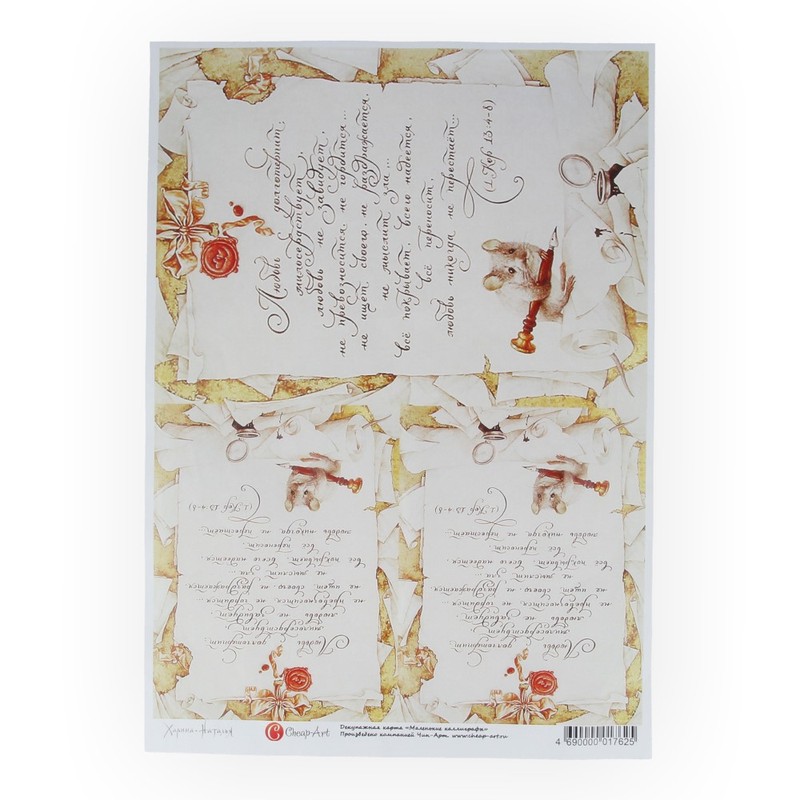 Любовь долготерпит,
милосердствует,
любовь не завидует,
не превозносится, не гордится...
не ищет своего, не раздражается,
не мыслит зла...
всё покрывает, всего надеется,
всё переносит,
любовь никогда не перестаёт...
(1 Кор 13:4-8)
(1 Кор 13:4-8)
любовь никогда не перестаёт...
всё переносит,
всё покрывает, всего надеется,
не мыслит зла...
не ищет своего, не раздражается,
не превозносится, не гордится...
любовь не завидует,
милосердствует,
Любовь долготерпит,
(1 Кор 13:4-8)
любовь никогда не перестаёт...
всё переносит,
всё покрывает, всего надеется,
не мыслит зла...
не ищет своего, не раздражается,
не превозносится, не гордится...
любовь не завидует,
милосердствует,
Любовь долготерпит,
Cheap-Art
Декупажная карта «Маленькие каллиграфы»
Произведено компанией Чип-Арт. www.cheap-art.ru
4 690000 017625